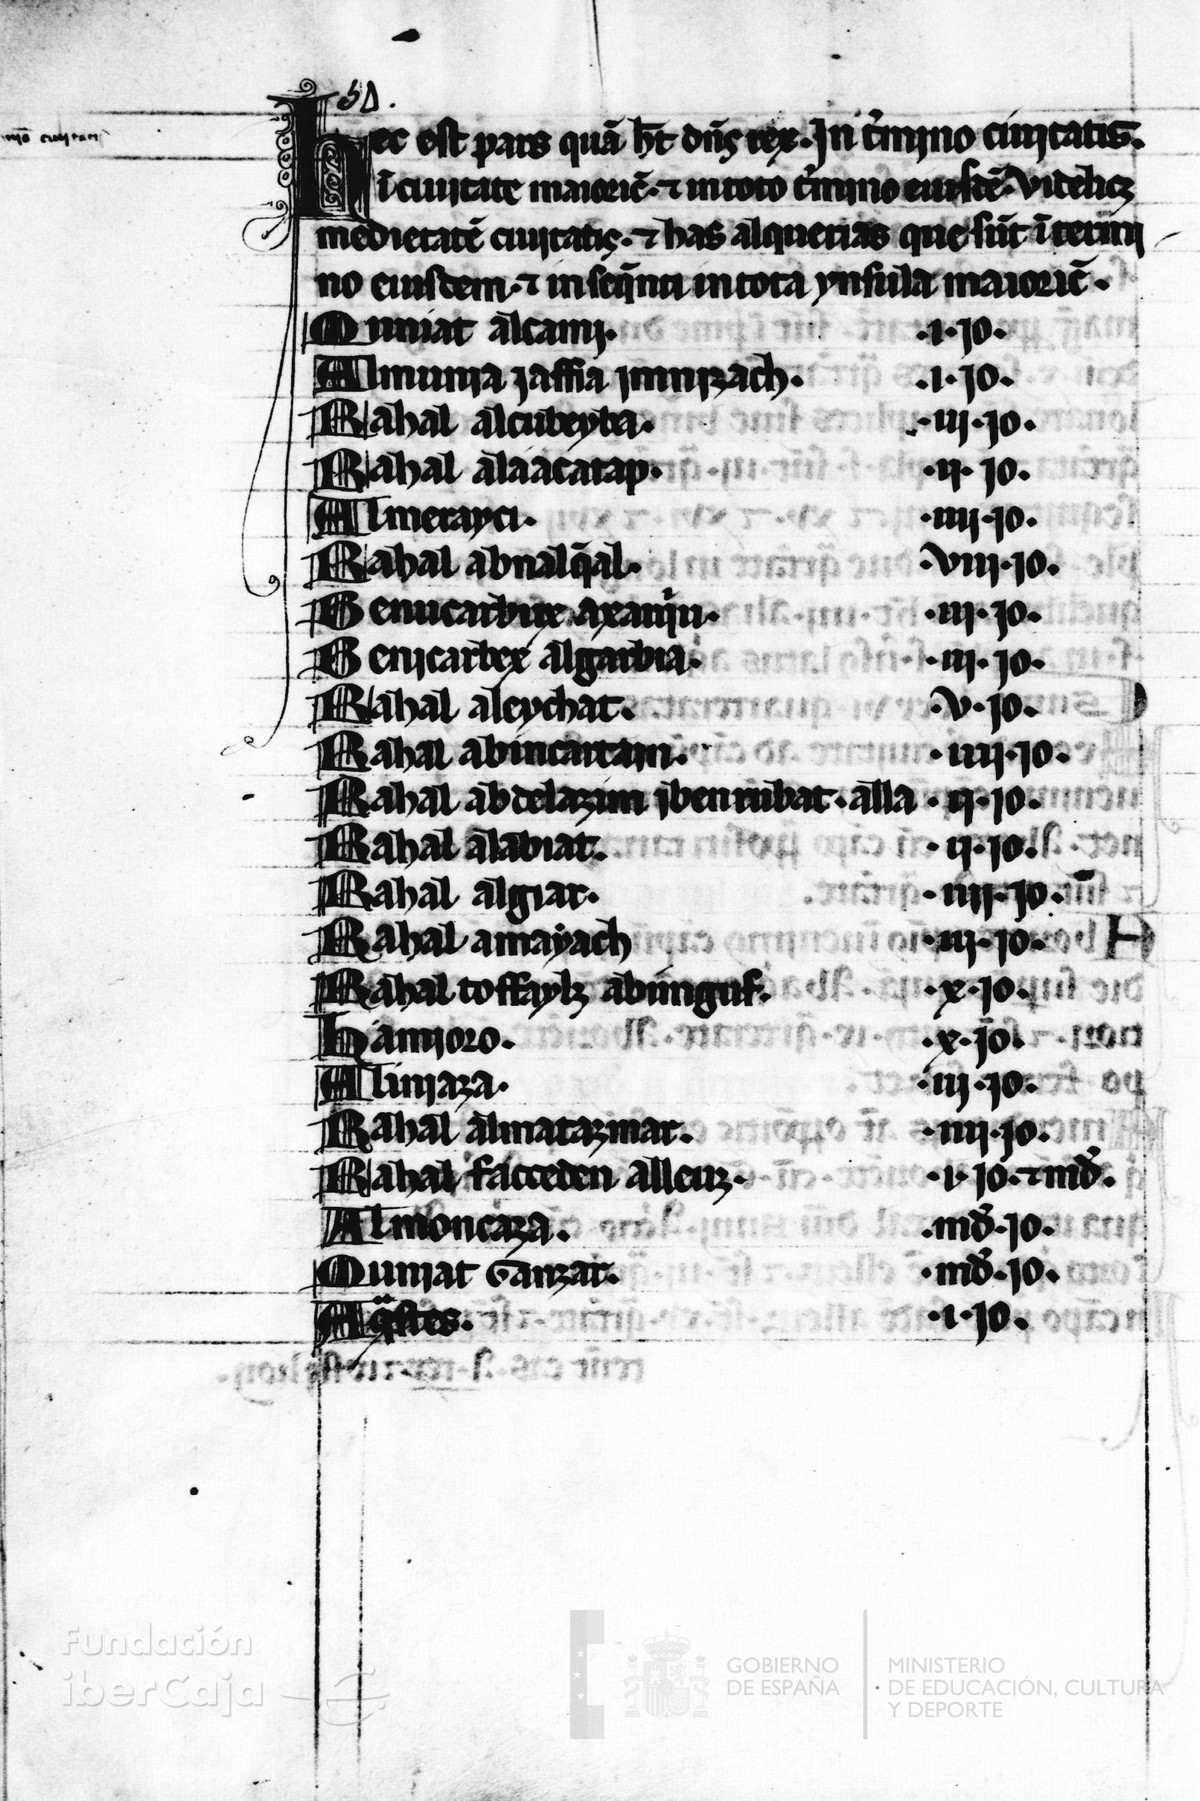 hec est pars quā ht̄ dn̄s rex. In t̄mino ciuitatis.
ī ciuitate maioric̄. ⁊ in toto t̄mino eiusdē. Videlicꝫ
medietatē ciuitatis. ⁊ has alquerias que sūt ī termi
no eiusdem. ⁊ in seq̄nti in tota ynsula maioric̄.
Muniat alcami. .i. jo.
Almunia jaffia .i. jo.
Rahal alcubeyba. .iij. jo.
Rahal alaacatap. .ij. jo.
Almerayci. .iiij. jo.
Rahal abnalq̄al. .viij. jo.
Benucarbux axarqui. .iij. jo.
Benicarbex algarbia. .iij. jo.
Rahal aleychat. .v. jo.
Rahal abincartam. .iiij. jo.
Rahal abdelazim iben rubat. alla .ij. jo.
Rahal alabiat. .ij. jo.
Rahal algiar. .iiij. jo.
Rahal amayach .iij. jo.
Rahal toffayla abinguf. .x. jo.
Hamioro. .x. jo.
Aliniaza. .iij. jo.
Rahal almatazmar. .iiij. jo.
Rahal facceden alleuz. .i. jo. ⁊ md̄.
Almoncaza. .md̄. jo.
Muniat Ganzar. .md̄. jo.
.i. jo.
Fundación
iberCaja
GOBIERNO
DE ESPAÑA
MINISTERIO
DE EDUCACIÓN, CULTURA
Y DEPORTE